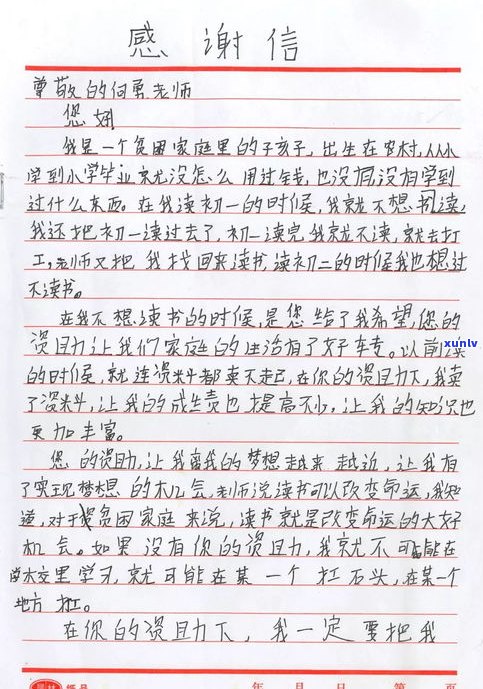 感谢信
尊敬的何勇老师
您好
我是一个贫困家庭里的子孩子，出生在农村，从小
学到小学毕业就没怎么用过钱，也没有学到
过什么东西。在我读初一的时候，我就不想读，
我还把初一读过去了，初一读完我就不读，就去打
工，老师又把我找回来读书，读初二的时候我也想过
不读书。
在我不想读书的时候，是您给了我希望，您的
资助让我们家庭的生活有了好转。以前读
的时候，就连资料都卖不起，在你的资助下，我卖
了资料，让我的成绩也提高不少，让我的知识也
更加丰富。
您的资助，让我离我的梦想越来越近，让我有
了实现梦想的机会，老师说读书可以改变命运，我知
道，对于贫困家庭来说，读书就是改变命运的大好
机会。如果没有你的资助，我就不可能在
学校里学习，就可能在某一个扛石头，在某一个
地方扛。
在你的资助下，我一定要把我
年 月 日 第 页
xunlv